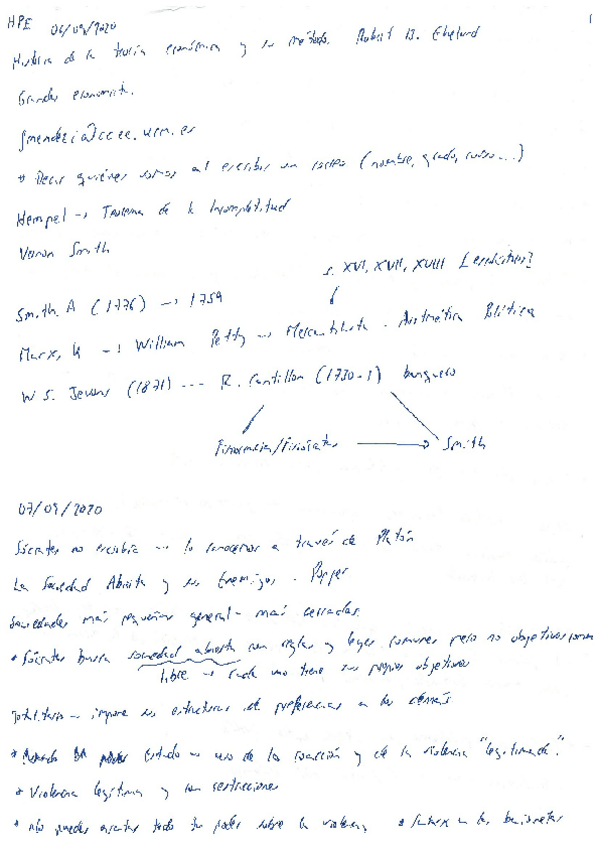 HPE 06/09/2020 1
Historia de la teoría económica y su método. Robert B. Ekelund
Grandes economistas.
jmendezi@ccee.ucm.es
* Decir quiénes somos al escribir un correo (nombre, grado, curso...)
Hempel → Teorema de la Incompletitud
Vernon Smith
s. XVI, XVII, XVIII
Smith, A (1776) → 1759
Marx, K → William Petty → Mercantilista - Aritmética Política
W S. Jevons (1871) --- R. Cantillon (1730-1) banquero
Fisiocracia/Fisiócratas → Smith
07/09/2020
Sócrates no escribía → lo conocemos a través de Platón
La Sociedad Abierta y sus Enemigos. Popper
Sociedades más pequeñas general- más cerradas.
* Sócrates busca sociedad abierta con reglas y leyes comunes pero no objetivos
libre → cada uno tiene sus propios objetivos
→ impone sus estructuras de preferencias a los demás
* Estado → uso de la coacción y de la violencia "legitimada".
* Violencia legítima y con restricciones
* No puedes todo tu poder sobre la violencia * en las bayonetas